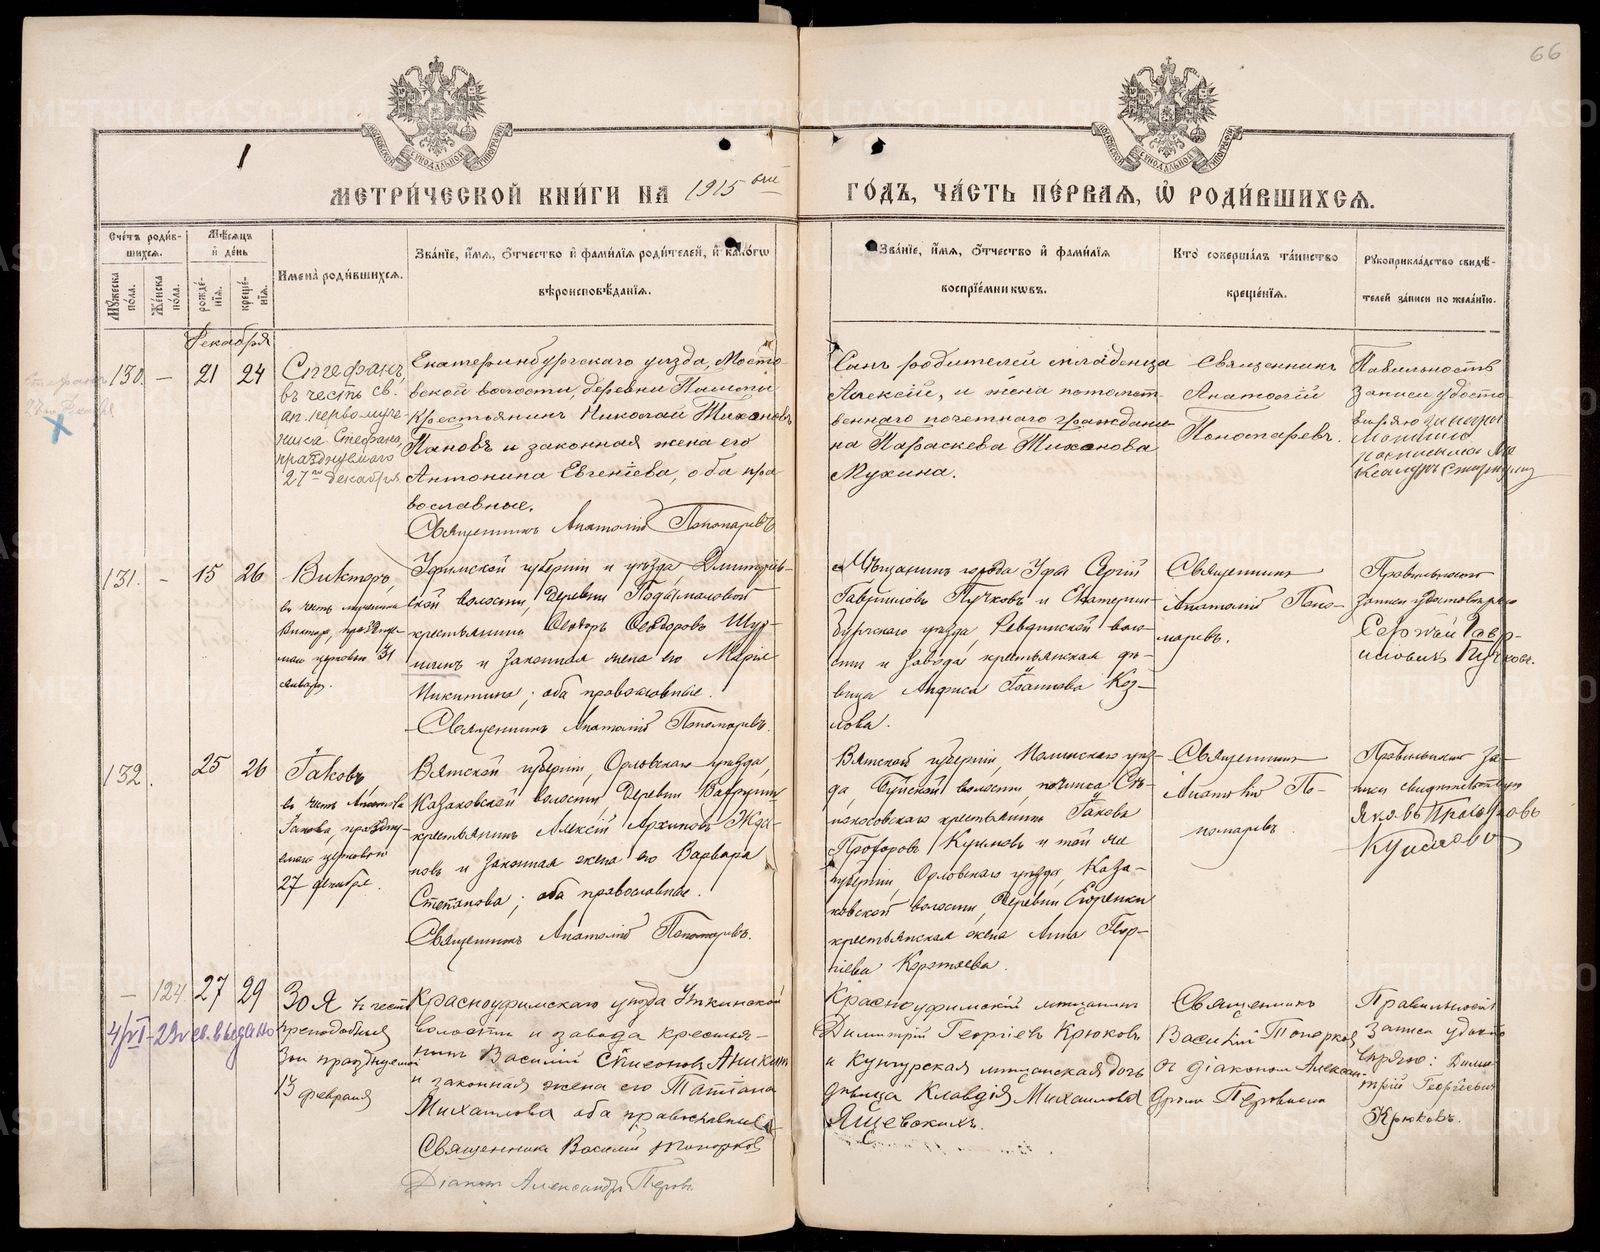 66
МЕТРИ́ЧЕСКОЙ КНИ́ГИ НА 1915 ый ГО́ДЪ, ЧА́СТЬ ПЕ́РВАѦ, Ѡ҆ РОДИ́ВШИХСѦ.
Сче́тъ роди́в-
шихсѧ.
Мꙋ́жеска по́ла.
Же́нска по́ла.
Мѣ́сѧцъ и҆ де́нь
рожде́-
нїѧ.
креще́-
нїѧ.
И҆мена̀ роди́вшихсѧ.
Зва́нїе, и҆́мѧ, ѻ҆́тчество и҆ фами́лїѧ роди́телей, и҆ како́гѡ
вѣроисповѣ́данїѧ.
Зва́нїе, и҆́мѧ, ѻ҆́тчество и҆ фами́лїѧ
воспрїе́мникѡвъ.
Кто̀ соверша́лъ та́инство
креще́нїѧ.
Рꙋкоприкла́дство свидѣ́-
телей за́писи по жела́нїю.
Декабря
130. — 21 24
Стефанъ,
въ честь св.
ап. первомуче-
ника Стефана,
празднуемаго
27го декабря
Екатеринбургскаго уѣзда, Мосто-
вской волости, деревни
Крестьянинъ Николай Тихоновъ
Пановъ и законная жена его
Антонина Евгенїева, оба пра
вославные.
Священникъ Анатолій Пономаревъ
Сынъ родителей младенца
Алексѣй, и жена потомст-
веннаго почетнаго граждани-
на Параскева Тихонова
Мухина.
Священникъ
Анатолій
Пономаревъ.
Правильность
Записи удосто-
вѣряю
131. — 15 26
Викторъ,
въ честь мученика
Виктора, праздну-
маго церковью 31
января.
Уфимской губерніи и уѣзда Дмитріев-
ской волости, деревни Подымаловой
крестьянинъ Ѳеодоръ Ѳеодоровъ Шур-
шинъ и законная жена его Марія
Никитина; оба православные.
Священникъ Анатолій Пономаревъ.
Мѣщанинъ города Уфы Сергій
Гавріиловъ Пучковъ и Екатерин-
бургскаго уѣзда, Ревдинской воло-
сти и завода крестьянская дѣ-
вица Анфиса Іоаннова Коз-
лова.
Священникъ
Анатолій Поно-
маревъ.
Правильность
записи удостовѣряю
Сергѣй Гавр-
иловичъ Пучковъ.
132. 25 26
Іаковъ
въ честь Апостола
Іакова, праздну-
емаго церковью
27 декабря.
Вятской губерніи, Орловскаго уѣзда,
Казаковской волости, деревни
крестьянинъ Алексій Архиповъ Жда-
новъ и законная жена его Варвара
Степанова; оба православные.
Священникъ Анатолій Пономаревъ.
Вятской губерніи, Нолинскаго уѣз-
да Буйской волости, починка
крестьянинъ Іаковъ
Прохоровъ и той же
губерніи, Орловскаго уѣзда, Каза-
ковской волости, деревни
крестьянская жена Анна
Коротаева.
Священникъ
Анатолій По-
номаревъ.
Правильность за-
писи свидѣтельствую
Яковъ Прохоровъ
— 124 27 29
4/VI-29г св. выдано
Зоя въ честь
преподобныя
Зои празднуемой
13 февраля
Красноуфимскаго уѣзда Уткинской
волости и завода кресть-
нинъ Василій Симеоновъ Аникинъ
и законная жена его Татіана
Михаилова оба православные
Священникъ Василій Топорковъ
Діаконъ Александръ Перовъ.
Красноуфимскій мѣщанинъ
Димитрій Георгіевъ Крюковъ
и Кунгурская мѣщанская дочь
дѣвица Клавдія Михаилова
Священникъ
Василій Топорковъ
съ діакономъ Алексан-
дромъ Перовымъ
Правильность
записи удосто-
вѣряю: Дими-
трій Георгіевъ
Крюковъ.